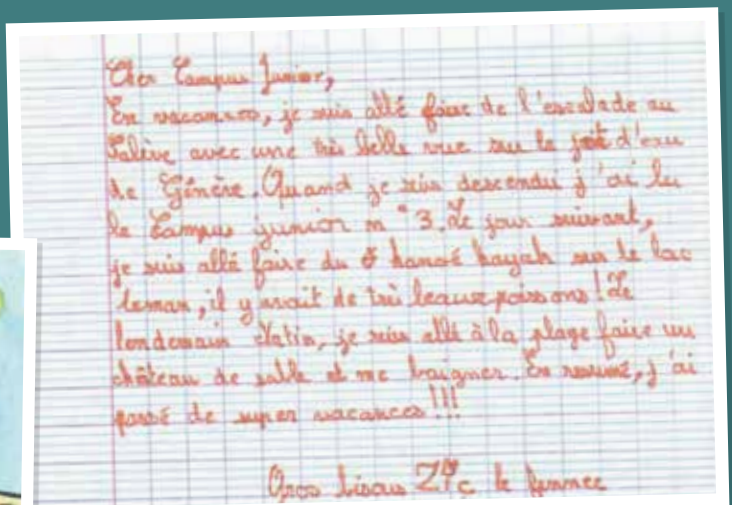 Cher Campus Junior,
En vacances, je suis allé faire de l'escalade au
Salève avec une très belle vue sur le jet d'eau
de Genève. Quand je suis descendu j'ai lu
le Campus junior n°3. Le jour suivant,
je suis allé faire du kanoé kayak sur le lac
leman, il y avait de très beaux poissons! Le
lendemain matin, je suis allé à la plage faire un
château de sable et me baigner. En resumé, j'ai
passé de super vacances!!!
Gros bisous le fennec